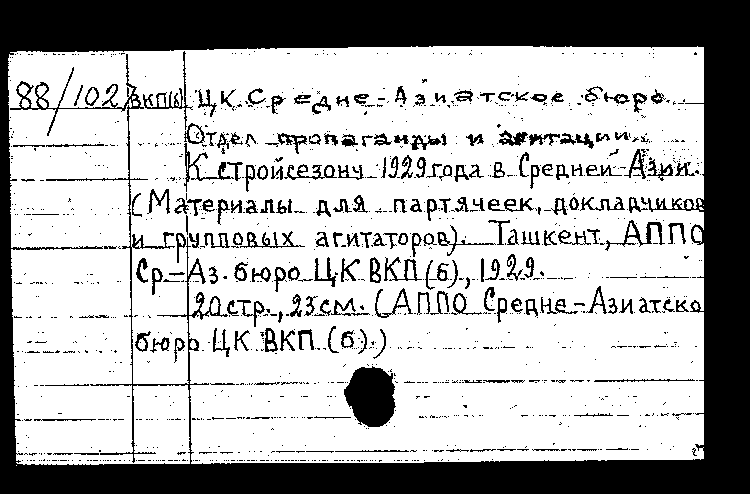 88/1027 ВКП(б) ЦК Средне-Азиатское бюро.
Отдел пропаганды и агитации.
К стройсезону 1929 года в Средней Азии.
(Материалы для партячеек, докладчиков
и групповых агитаторов). Ташкент, АППО
Ср.-Аз. бюро ЦК ВКП(б), 1929.
20 стр., 23 см. (АППО Средне-Азиатско
бюро ЦК ВКП (б).)